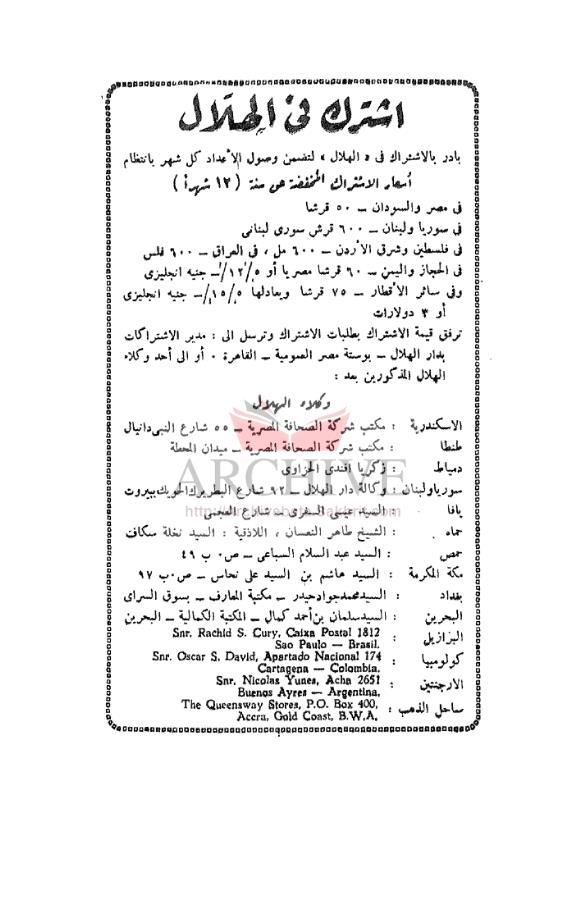 اشترك في الهلال
بادر بالاشتراك في « الهلال » لتضمن وصول الأعداد كل شهر بانتظام
أسعار الاشتراك المخفضة عن سنة ( ١٢ شهراً )
في مصر والسودان ــ ٥٠ قرشا
في سوريا ولبنان ــ ٦٠٠ قرش سورى لبنانى
في فلسطين وشرق الأردن ــ ٦٠٠ مل ، في العراق ــ ٦٠٠ فلس
في الحجاز واليمن ــ ٦٠ قرشا مصريا أو ٥/١٢/ــ جنيه انجليزى
وفى سائر الأقطار ــ ٧٥ قرشا ويعادلها ٥/١٥/ــ جنيه انجليزى
أو ٣ دولارات
ترفق قيمة الاشتراك بطلبات الاشتراك وترسل الى : مدير الاشتراكات
بدار الهلال ــ بوستة مصر العمومية ــ القاهرة . أو الى أحد وكلاء
الهلال المذكورين بعد :
وكلاء الهلال
الاسكندرية : مكتب شركة الصحافة المصرية ــ ٥٥ شارع النبى دانيال
طنطا : مكتب شركة الصحافة المصرية ــ ميدان المحطة
دمياط : زكريا افندى الخزاوى
سوريا ولبنان : وكالة دار الهلال ــ ٩٢ شارع البطريرك الحويك بيروت
يافا : السيد عيسى السفرى ــ شارع العجمى
حماه : الشيخ طاهر النعسان ، اللاذقية : السيد نخلة سكاف
حمص : السيد عبد السلام السباعى ــ ص٠ب ٤٩
مكة المكرمة : السيد هاشم بن السيد على نحاس ــ ص٠ب ٩٧
بغداد : السيد محمد جواد حيدر ــ مكتبة المعارف ــ بسوق السراى
البحرين : السيد سلمان بن أحمد كمال ــ المكتبة الكمالية ــ البحرين
البرازيل : Snr. Rachid S. Cury, Caixa Postal 1812
Sao Paulo — Brasil.
كولومبيا : Snr. Oscar S. David, Apartado Nacional 174
Cartagena — Colombia.
الارجنتين : Snr. Nicolas Yunes, Acha 2651
Buenos Ayres — Argentina,
ساحل الذهب : The Queensway Stores, P.O. Box 400,
Accra, Gold Coast, B.W.A.
ARCHIVE